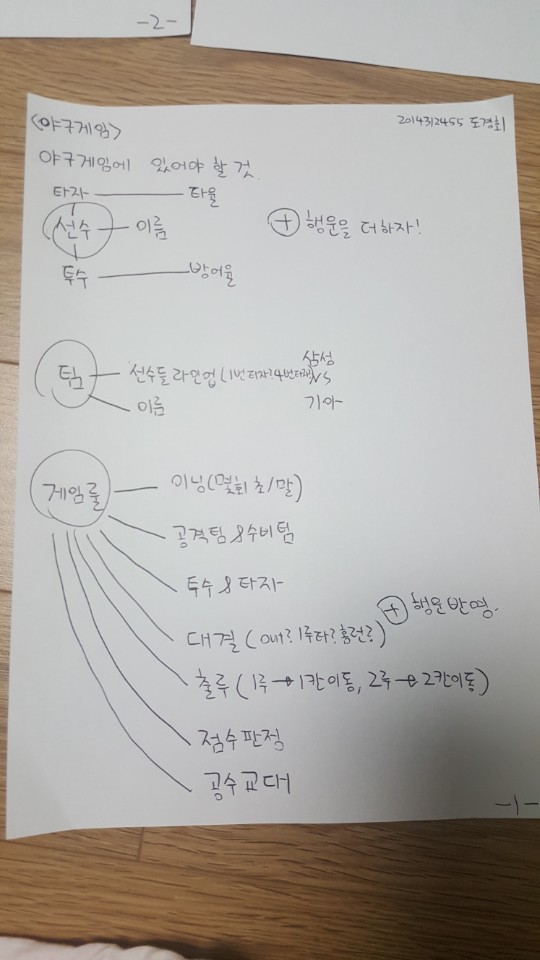 -2-
<야구게임>
2014312455 도경회
야구게임에 있어야 할 것.
타자 타율
선수 이름
⊕ 행운을 더하자!
투수 방어율
팀 선수들 라인업(1번타자?4번타자?)
삼성
VS
기아
이름
게임룰 이닝(몇회 초/말)
공격팀 & 수비팀
투수 & 타자
대결 (아웃? 1루타? 홈런?)
⊕ 행운반영.
출루 (1루→1칸이동, 2루→2칸이동)
점수판정
공수교대
-1-